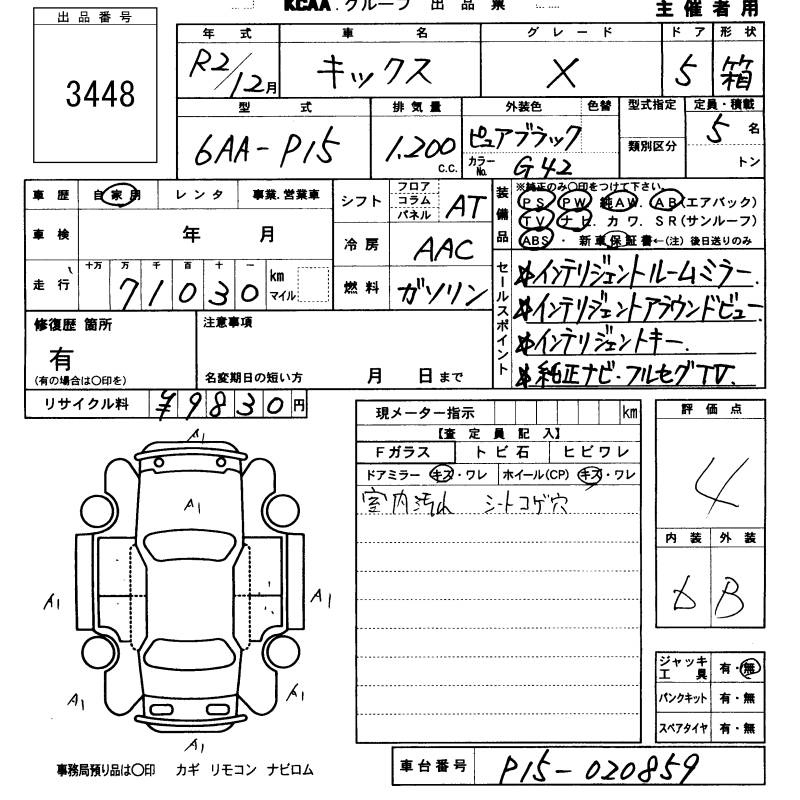 KCAA.グループ 出品票
主催者用
出品番号
3448
年式 車名 グレード ドア 形状
R2/12月 キックス X 5 箱
型式 排気量 外装色 色替 型式指定 定員・積載
6AA-P15 1.200 c.c. ピュアブラック 類別区分 5 名
カラーNo. G42 トン
車歴 自家用 レンタ 事業.営業車
車検 年 月
走行 十万 万 千 百 十 一
71030 km マイル
シフト フロア コラム パネル AT
冷房 AAC
燃料 ガソリン
装備品
※純正のみ○印をつけて下さい。
PS PW 純AW. AB(エアバック)
TV ナビ. カワ. SR(サンルーフ)
ABS ・ 新車保証書←(注)後日送りのみ
セールスポイント
インテリジェントルームミラー.
インテリジェントアラウンドビュー.
インテリジェントキー.
純正ナビ・フルセグTV.
修復歴 箇所
有
(有の場合は○印を)
注意事項
名変期日の短い方 月 日まで
リサイクル料 ¥9830円
現メーター指示 km
【査定員記入】
Fガラス トビ石 ヒビワレ
ドアミラー キズ・ワレ ホイール(CP) キズ・ワレ
室内汚れ シートコゲ穴
評価点
4
内装 外装
D B
ジャッキ工具 有・無
パンクキット 有・無
スペアタイヤ 有・無
A1
A1
A1
A1
A1
A1
A1
事務局預り品は○印 カギ リモコン ナビロム
車台番号 P15-020859